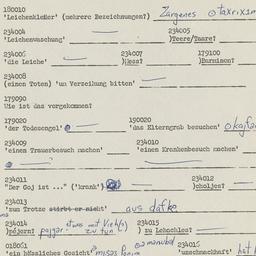 180010
'Leichenkleider' (mehrere Bezeichnungen?) Zargenes
234004 234005
'Leichenwaschung' )Teere/Taare?
234006 234007 179100
'die Leiche' )Hess? )Burminen?
234008
(einen Toten) 'um Verzeihung bitten'
179090
Wie ist das vorgekommen?
179020 190020
'der Todesengel' 'das Elterngrab besuchen'
234009 234010
'einen Trauerbesuch machen' 'einen Krankenbesuch machen'
234011 234012
"Der Goj ist ..." ('krank') )choljes?
234013
'zum Trotze stirbt er nicht' aus dafke
234014 234015
)pejern? etwas mit Vieh(s) zu tun )zu Lehochles?
018061 234016
'ein hässliches Gesicht'